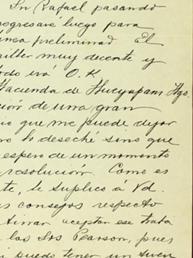 Dn Rafael pasando
luego para
línea preliminar El
muy decente y
todo irá O.K
Hacienda de Hueyapam Hgo.
de una gran
que me puede dejar
lo deseché sino que
espero de un momento
resolucion. Como es
te, le suplico á Vd.
consejos respecto
aceptar ese trato
los Srs Pearson, pues
puede tener un buen